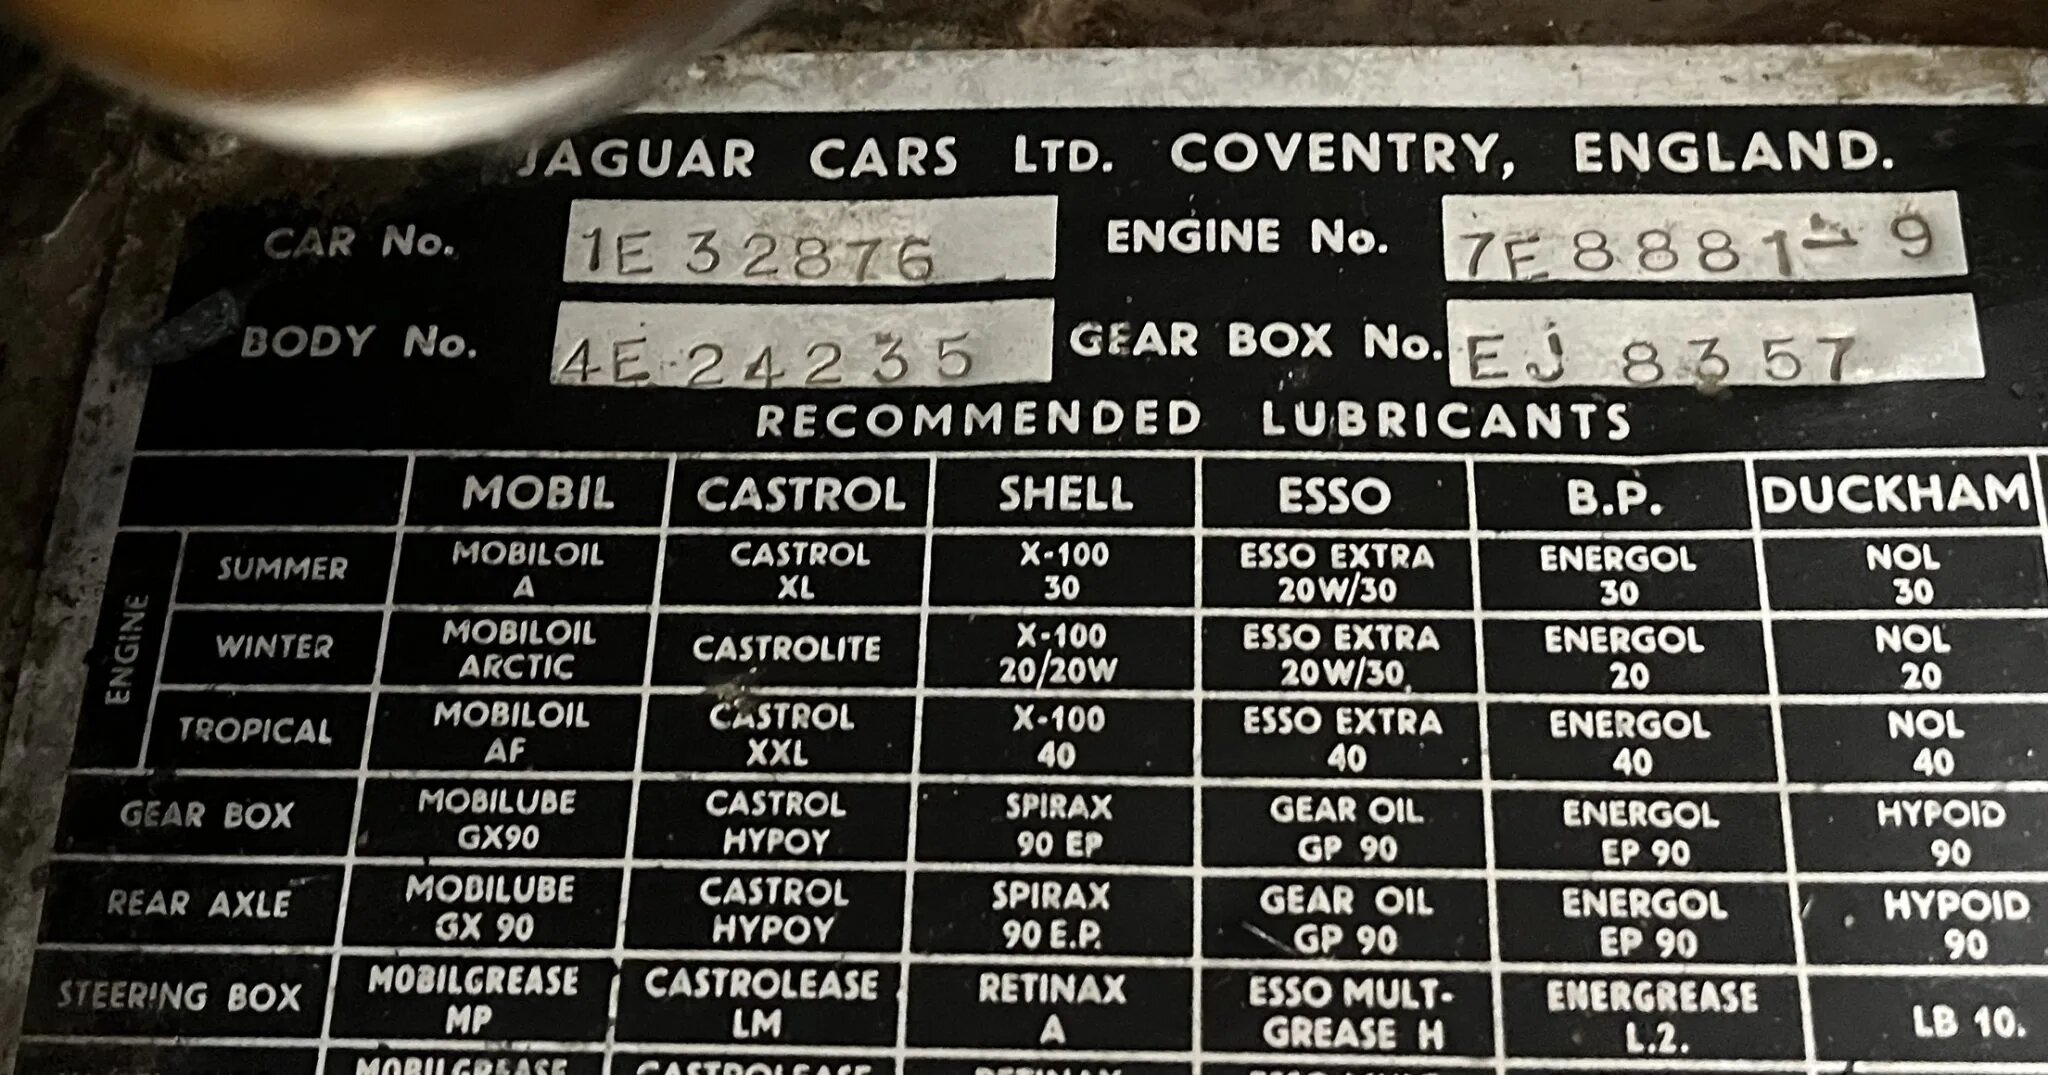 JAGUAR CARS LTD. COVENTRY, ENGLAND.
CAR No. 1E 32876 ENGINE No. 7E 8881-9
BODY No. 4E 24235 GEAR BOX No. EJ 8357
RECOMMENDED LUBRICANTS
MOBIL CASTROL SHELL ESSO B.P. DUCKHAM
ENGINE
SUMMER MOBILOIL A CASTROL XL X-100 30 ESSO EXTRA 20W/30 ENERGOL 30 NOL 30
WINTER MOBILOIL ARCTIC CASTROLITE X-100 20/20W ESSO EXTRA 20W/30 ENERGOL 20 NOL 20
TROPICAL MOBILOIL AF CASTROL XXL X-100 40 ESSO EXTRA 40 ENERGOL 40 NOL 40
GEAR BOX MOBILUBE GX90 CASTROL HYPOY SPIRAX 90 EP GEAR OIL GP 90 ENERGOL EP 90 HYPOID 90
REAR AXLE MOBILUBE GX 90 CASTROL HYPOY SPIRAX 90 E.P. GEAR OIL GP 90 ENERGOL EP 90 HYPOID 90
STEERING BOX MOBILGREASE MP CASTROLEASE LM RETINAX A ESSO MULT-GREASE H ENERGREASE L.2. LB 10.
MOBILGREASE CASTROLEASE RETINAX ESSO MULT- ENERGREASE